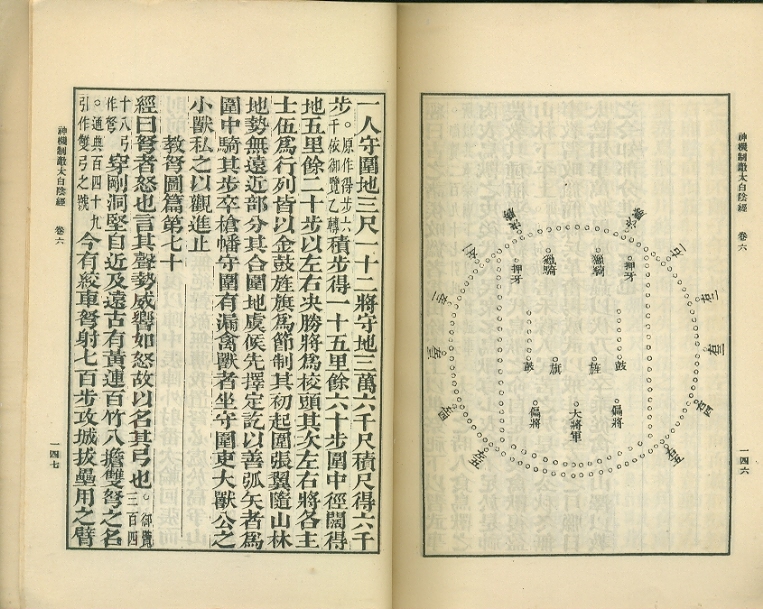 神機制敵太白陰經 卷六
一四六
押牙
獵騎
獵騎
押牙
鼓
旌
旗
鼓
偏將
大將軍
偏將
一人守圍地三尺一十二將守地三萬六千尺積尺得六千
步。原作得步六千依御覽乙轉積步得一十五里餘六十步圍中徑闊得
地五里餘二十步以左右决勝將爲校頭其次左右將各主
士伍爲行列皆以金鼓旌旗爲節制其初起圍張翼隨山林
地勢無遠近部分其合圍地虞候先擇定訖以善弧矢者爲
圍中騎其步卒槍幡守圍有漏禽獸者坐守圍吏大獸公之
小獸私之以觀進止
教弩圖篇第七十
經曰弩者怒也言其聲勢威響如怒故以名其弓也。御覽三百四
十八弓作弩穿剛洞堅自近及遠古有黄連百竹八擔雙弩之名
。通典百四十九引作雙弓之號今有絞車弩射七百步攻城拔壘用之臂
神機制敵太白陰經 卷六
一四七